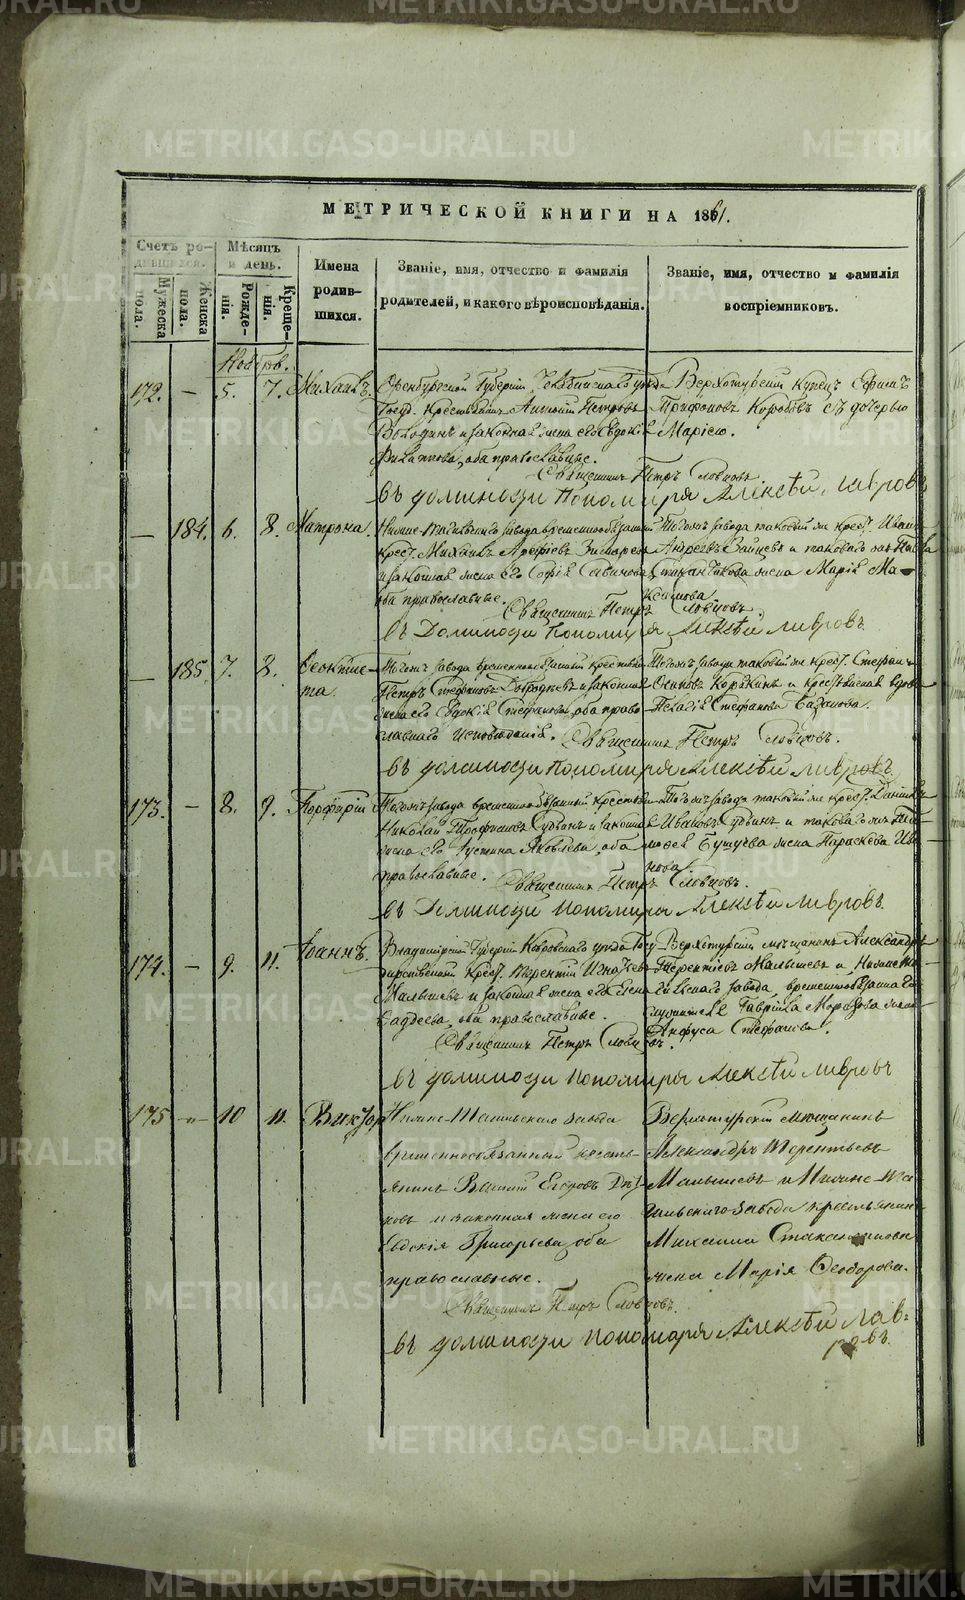 МЕТРИЧЕСКОЙ КНИГИ НА 1861.
Счетъ ро-
дившихся.
Мужеска
пола.
Женска
пола.
Мѣсяцъ
и день.
Рожде-
нія.
Креще-
нія.
Имена
родив-
шихся.
Званіе, имя, отчество и фамилія
родителей, и какого вѣроисповѣданія.
Званіе, имя, отчество и фамилія
воспріемниковъ.
Ноябрь.
172. — 5. 7. Михаилъ.
Оренбургской Губерніи Челябинскаго уѣзда
Госуд. крестьянинъ Антоній Петровъ
Володинъ и законная жена его Евдокія
оба православные.
Верхотурскій купецъ Ефимъ
Трифоновъ Коробовъ съ дочерью
Маріею.
Священникъ Петръ Словцовъ.
въ должности Пономаря Алексѣй Лавровъ
— 184. 6. 8. Матрона.
Нижне-Тагильскаго завода временнообязанный
крест. Михаилъ
и законная жена его Софія Савинова,
оба православные.
Тогожъ завода таковый же крест. Иванъ
Андреевъ Зайцевъ и таковаго же Павла
Стаканчикова жена Марія Ма-
ксимова
Священникъ Петръ Словцовъ.
въ Должности Пономаря Алексѣй Лавровъ
— 185. 7. 8. Ѳеокти-
ста.
Тогожъ завода временнообязанный крестьян.
Петръ Стефановъ и законная
жена его Евдокія Стефанова, оба право-
славнаго исповѣданія.
Тогожъ завода таковый же крест. Стефанъ
Осиповъ Корякинъ и крестьянская вдова
Пелагія Стефанова Базанова.
Священникъ Петръ Словцовъ.
въ должности Пономаря Алексѣй Лавровъ.
173. — 8. 9. Порфирій
Тогожъ завода временнообязанный крестьян.
Николай Трофимовъ и законная
жена его Устинія Яковлева, оба
православные.
Тогожъ завода таковый же крест. Даніилъ
Ивановъ и таковаго же Ти-
моѳея Бушуева жена Параскева Ива-
нова.
Священникъ Петръ Словцовъ.
въ Должности Пономаря Алексѣй Лавровъ
174. — 9. 11. Іоаннъ.
Владимірской Губерніи Ковровскаго уѣзда Госу-
дарственный крест. Терентій Игнатьевъ
Малышевъ и законная жена его Елена
Фаддеева, оба православные.
Верхотурскій мѣщанинъ Александръ
Терентьевъ Малышевъ и Нижне-Та-
гильскаго завода, временнообязаннаго
служителя Гавріила Морозова жена
Анфуса Стефанова.
Священникъ Петръ Словцовъ.
въ должности Пономаря Алексѣй Лавровъ
175 —"— 10 11. Викторъ
Нижне-Тагильскаго завода
временнообязанный кресть-
янинъ Василій Егоровъ
и законная жена его
Евдокія Григорьева, оба
православные.
Верхотурскій мѣщанинъ
Александръ Терентьевъ
Малышевъ и Нижне-Та-
гильскаго завода крестьянина
Михаила Стаканчикова
жена Марія Ѳеодорова.
Священникъ Петръ Словцовъ.
въ должности Пономаря Алексѣй Лав-
ровъ.
METRIKI.GASO-URAL.RU